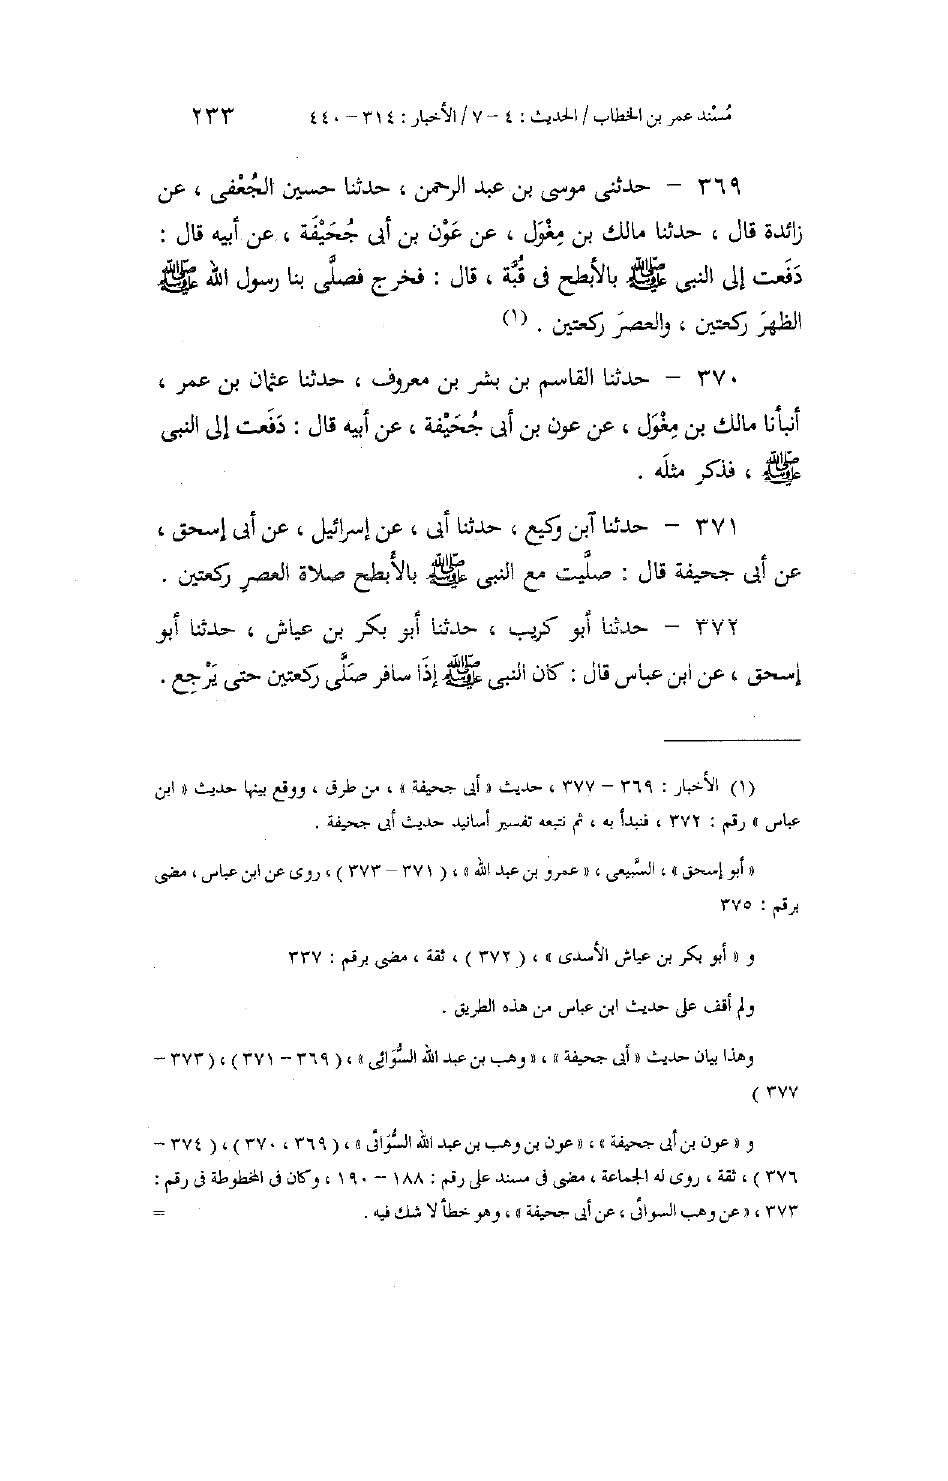 مُسْند عمر بن الخطاب / الحديث : ٤ – ٧ / الأخبار : ٣١٤ – ٤٤٠ ٢٣٣
٣٦٩ – حدثنى موسى بن عبد الرحمن ، حدثنا حسين الجُعْفى ، عن
زائدة قال ، حدثنا مالك بن مِغْوَل ، عن عَوْن بن أبى جُحَيْفَة ، عن أبيه قال :
دَفَعت إلى النبى ﷺ بالأبطح فى قُبَّة ، قال : فخرج فصلَّى بنا رسول الله ﷺ
الظهرَ ركعتين ، والعصرَ ركعتين . (١)
٣٧٠ – حدثنا القاسم بن بشر بن معروف ، حدثنا عثمان بن عمر ،
أنبأنا مالك بن مِغْوَل ، عن عون بن أبى جُحَيْفة ، عن أبيه قال : دَفَعت إلى النبى
ﷺ ، فذكر مثلَه .
٣٧١ – حدثنا آبن وكيع ، حدثنا أبى ، عن إسرائيل ، عن أبى إسحق ،
عن أبى جحيفة قال : صلَّيت مع النبى ﷺ بالأبطح صلاة العصرِ ركعتين .
٣٧٢ – حدثنا أبو كريب ، حدثنا أبو بكر بن عياش ، حدثنا أبو
إسحق ، عن ابن عباس قال : كان النبى ﷺ إذَا سافر صَلَّى ركعتين حتى يَرْجِع .
(١) الأخبار : ٣٦٩ – ٣٧٧ ، حديث « أبى جحيفة » ، من طرق ، ووقع بينها حديث « ابن
عباس » رقم : ٣٧٢ ، فنبدأ به ، ثم نتبعه تفسير أسانيد حديث أبى جحيفة .
« أبو إسحق » ، السَّبيعى ، « عمرو بن عبد الله » ، ( ٣٧١ – ٣٧٣ ) ، روى عن ابن عباس ، مضى
برقم : ٣٧٥
و « أبو بكر بن عياش الأسدى » ، ( ٣٧٢ ) ، ثقة ، مضى برقم : ٣٣٧
ولم أقف على حديث ابن عباس من هذه الطريق .
وهذا بيان حديث « أبى جحيفة » ، « وهب بن عبد الله السُّوَائِى » ، ( ٣٦٩ – ٣٧١ ) ، ( ٣٧٣ –
٣٧٧ )
و « عون بن أبى جحيفة » ، « عون بن وهب بن عبد الله السُّوَائى » ، ( ٣٦٩ ، ٣٧٠ ) ، ( ٣٧٤ –
٣٧٦ ) ، ثقة ، روى له الجماعة ، مضى فى مسند على رقم : ١٨٨ – ١٩٠ ، وكان فى المخطوطة فى رقم :
٣٧٣ ، « عن وهب السوائى ، عن أبى جحيفة » ، وهو خطأ لا شك فيه . =